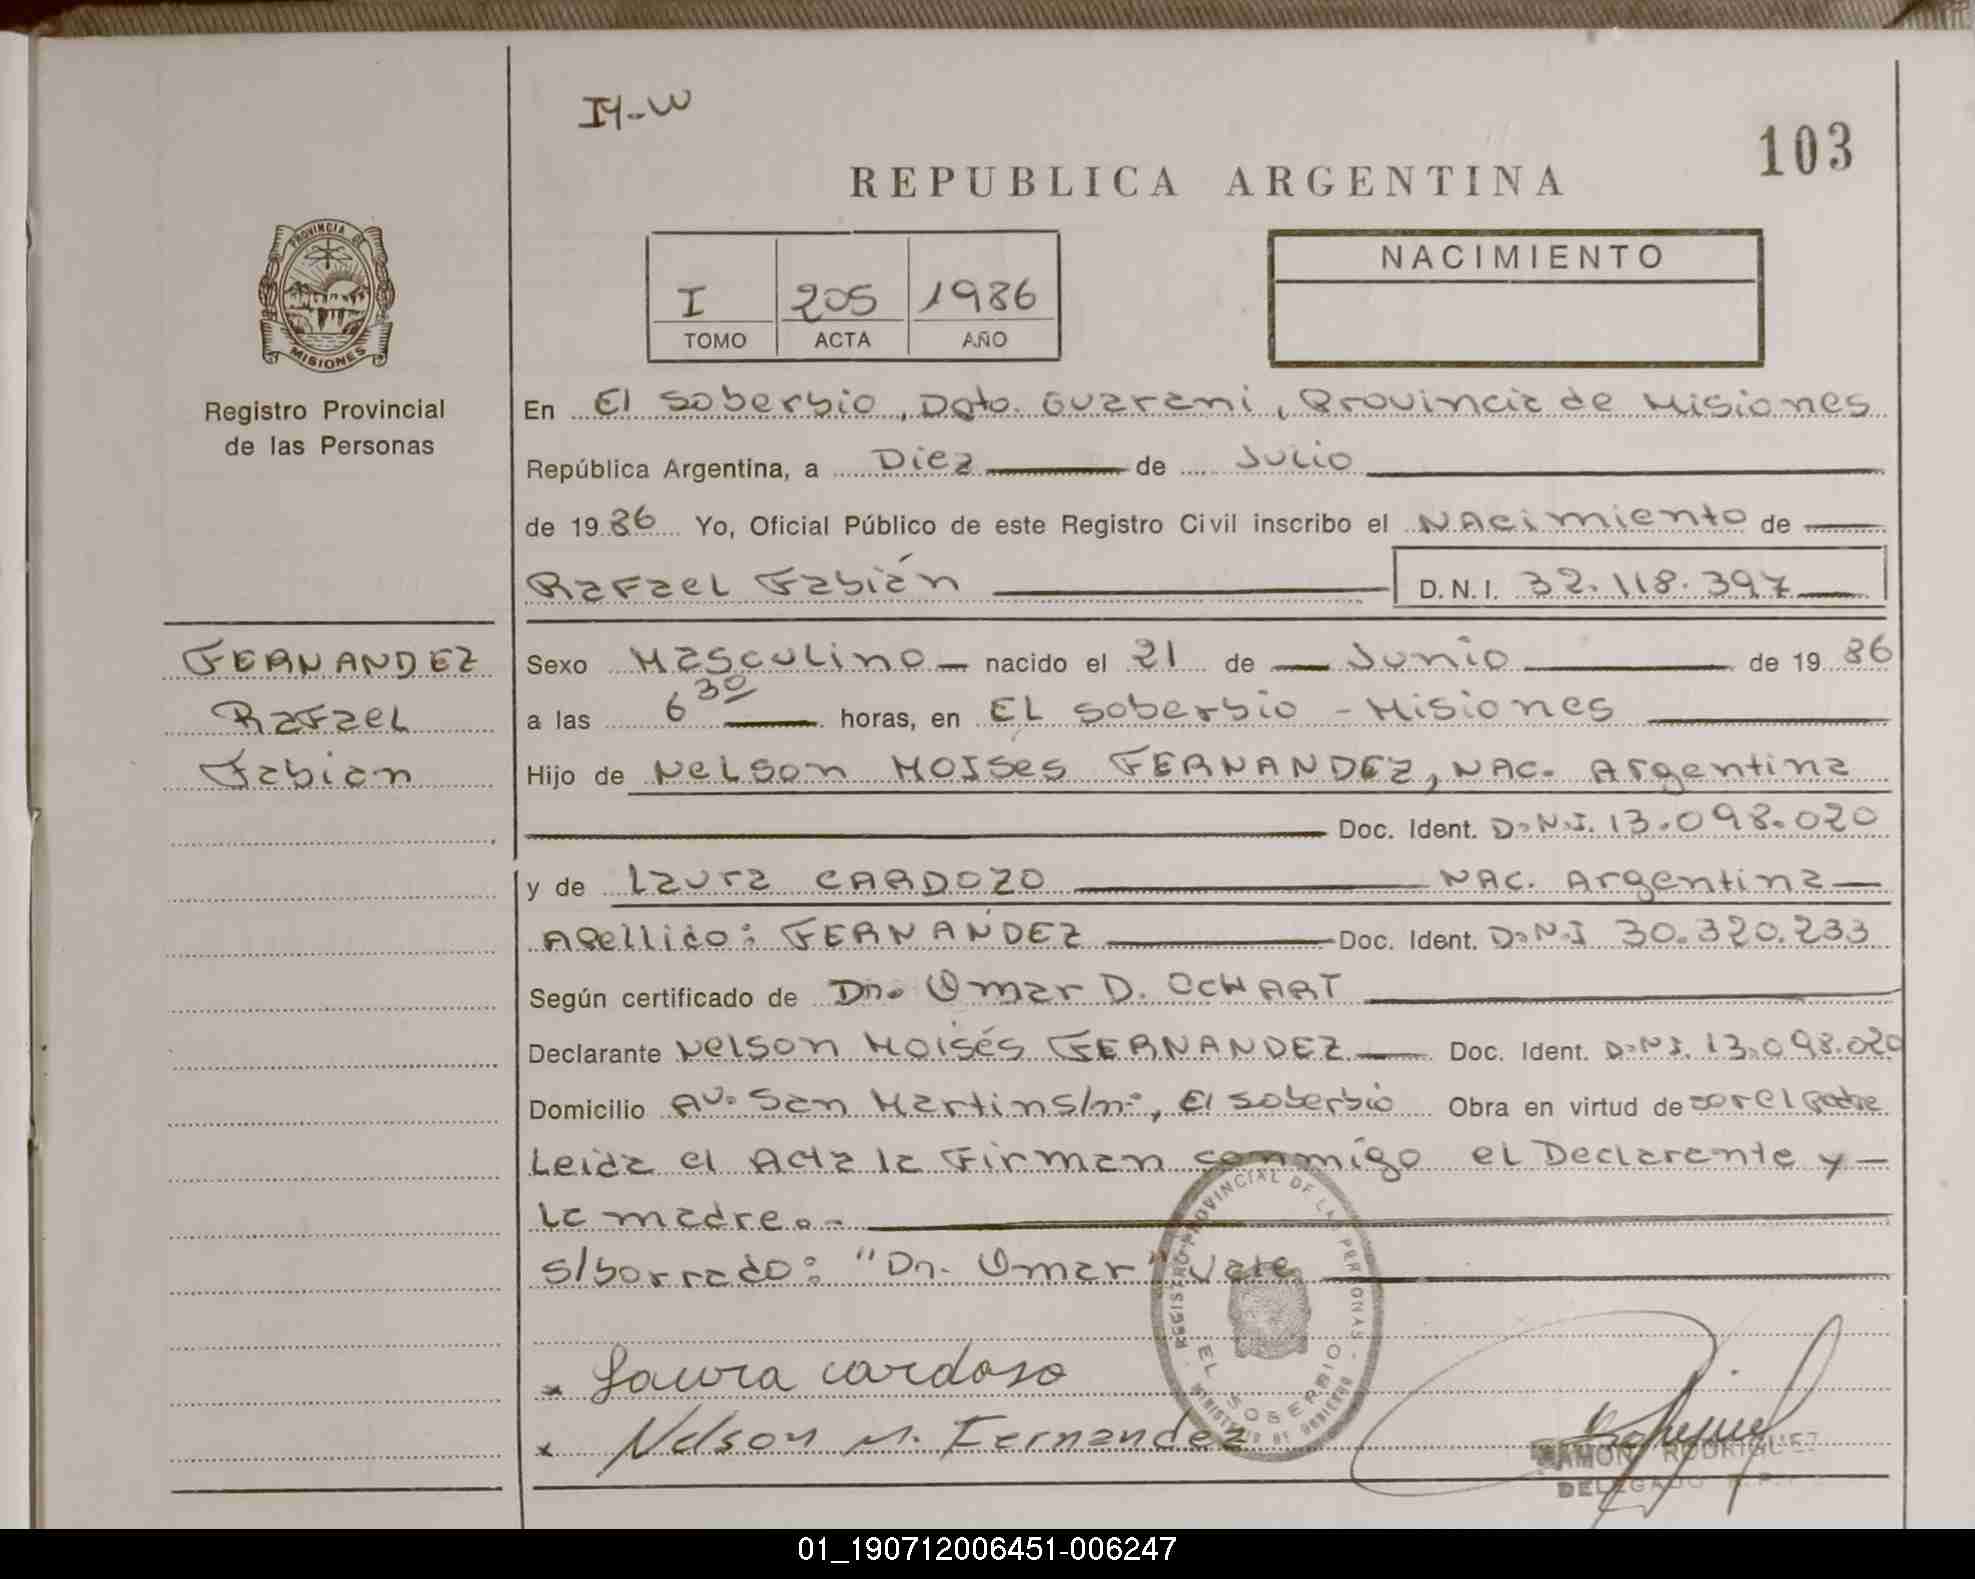 I4-W
103
REPUBLICA ARGENTINA
PROVINCIA DE
MISIONES
Registro Provincial
de las Personas
I 205 1986
TOMO ACTA AÑO
NACIMIENTO
En El Soberbio, Dpto. Guarani, Provincia de Misiones
República Argentina, a Diez de Julio
de 1986 Yo, Oficial Público de este Registro Civil inscribo el NAcimiento de
Rafael Fabián D.N.I. 32.118.397
FERNANDEZ
Rafael
Fabian
Sexo Masculino nacido el 21 de Junio de 1986
a las 6 30 horas, en El Soberbio - Misiones
Hijo de Nelson Moises FERNANDEZ, NAC. Argentina
Doc. Ident. D.N.I. 13.098.020
y de Laura CARDOZO NAC. Argentina
Apellido: FERNANDEZ Doc. Ident. D.N.I 30.320.233
Según certificado de Dn. Omar D. OCHART
Declarante Nelson Moisés FERNANDEZ Doc. Ident. D.N.I. 13.098.020
Domicilio Av. San Martin s/n°, El Soberbio Obra en virtud de ser el Padre
Leida el Acta la Firman conmigo el Declarante y
la madre.-
s/borrado: "Dn. Omar" Vale
REGISTRO PROVINCIAL DE LAS PERSONAS
EL SOBERBIO
MINISTERIO DE GOBIERNO
x Laura Cardoso
x Nelson M. Fernandez
RAMON RODRIGUEZ
DELEGADO
01_190712006451-006247